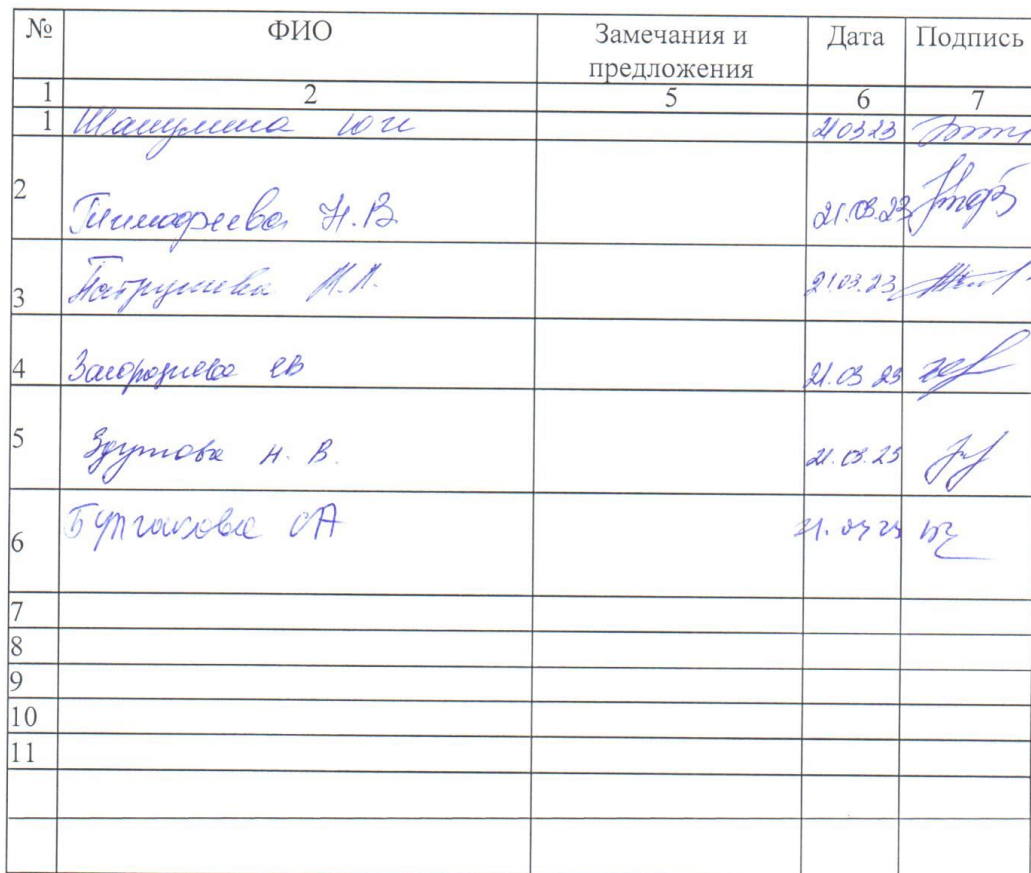 № ФИО Замечания и предложения Дата Подпись
1 2 5 6 7
1 210323
2 Тимофеева Н.В. 21.03.23
3 Патрушева 21.03.23
4 ЕВ 21.03 23
5 Здутова Н. В. 21.03.23
6 Булгакова ОА
7
8
9
10
11